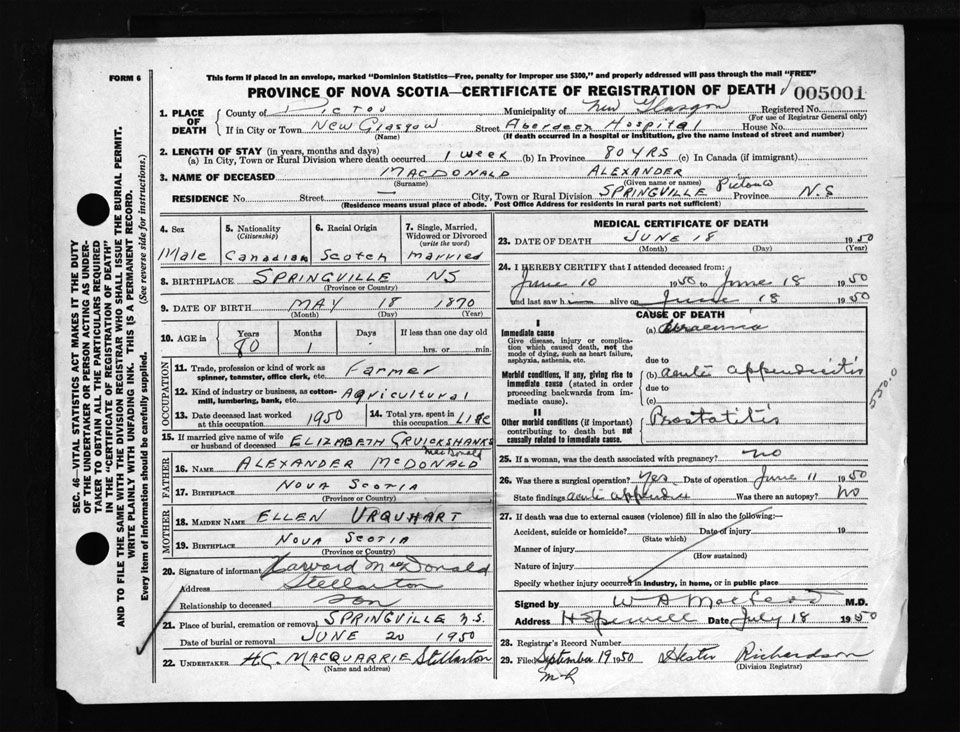 FORM 6
This form if placed in an envelope, marked "Dominion Statistics—Free, penalty for improper use $300," and properly addressed will pass through the mail "FREE"
PROVINCE OF NOVA SCOTIA—CERTIFICATE OF REGISTRATION OF DEATH 005001
1. PLACE OF DEATH County of PICTOU Municipality of New Glasgow Registered No.
(For use of Registrar General only)
If in City or Town NEW GLASGOW Street Aberdeen Hospital House No.
(Name) (If death occurred in a hospital or institution, give the name instead of street and number)
2. LENGTH OF STAY (in years, months and days)
(a) In City, Town or Rural Division where death occurred 1 week (b) In Province 80 YRS (c) In Canada (if immigrant)
3. NAME OF DECEASED MACDONALD ALEXANDER
(Surname) (Given name or names)
RESIDENCE No. Street City, Town or Rural Division SPRINGVILLE Pictou Co Province N.S
(Residence means usual place of abode. Post Office Address for residents in rural parts not sufficient)
4. Sex
Male
5. Nationality
(Citizenship)
Canadian
6. Racial Origin
Scotch
7. Single, Married, Widowed or Divorced
(write the word)
married
8. BIRTHPLACE SPRINGVILLE NS
(Province or Country)
9. DATE OF BIRTH MAY 18 1870
(Month) (Day) (Year)
10. AGE in Years Months Days If less than one day old
80 1 hrs. or min.
OCCUPATION
11. Trade, profession or kind of work as spinner, teamster, office clerk, etc. Farmer
12. Kind of industry or business, as cotton-mill, lumbering, bank, etc. Agricultural
13. Date deceased last worked at this occupation 1950
14. Total yrs. spent in this occupation Life
15. If married give name of wife or husband of deceased ELIZABETH CRUICKSHANKS
FATHER
MacDonald
16. NAME ALEXANDER McDONALD
17. BIRTHPLACE NOVA SCOTIA
(Province or Country)
MOTHER
18. MAIDEN NAME ELLEN URQUHART
19. BIRTHPLACE NOVA SCOTIA
(Province or Country)
20. Signature of informant Harward MacDonald
Address Stellarton
Relationship to deceased son
21. Place of burial, cremation or removal SPRINGVILLE N.S.
Date of burial or removal JUNE 20 1950
22. UNDERTAKER H.C. MACQUARRIE Stellarton
(Name and address)
MEDICAL CERTIFICATE OF DEATH
23. DATE OF DEATH JUNE 18 1950
(Month) (Day) (Year)
24. I HEREBY CERTIFY that I attended deceased from:
June 10 1950 to June 18 1950
and last saw h alive on June 18 1950
CAUSE OF DEATH
I
Immediate cause (a) Uraemia
Give disease, injury or complication which caused death, not the mode of dying, such as heart failure, asphyxia, asthenia, etc.
due to
Morbid conditions, if any, giving rise to immediate cause (stated in order proceeding backwards from immediate cause).
(b) acute appendicitis
due to
(c)
550.0
II
Other morbid conditions (if important) contributing to death but not causally related to immediate cause.
Prostatitis
25. If a woman, was the death associated with pregnancy? no
26. Was there a surgical operation? Yes. Date of operation June 11 1950
State findings acute appendix Was there an autopsy? No
27. If death was due to external causes (violence) fill in also the following:—
Accident, suicide or homicide? Date of injury 19
(State which)
Manner of injury
(How sustained)
Nature of injury
Specify whether injury occurred in industry, in home, or in public place
Signed by W A MacLeod M.D.
Address Hopewell Date July 18 1950
28. Registrar's Record Number
29. Filed September 19 1950 Hester Richardson
(Division Registrar)
SEC. 46—VITAL STATISTICS ACT MAKES IT THE DUTY OF THE UNDERTAKER OR PERSON ACTING AS UNDERTAKER TO OBTAIN ALL THE PARTICULARS REQUIRED IN THE "CERTIFICATE OF REGISTRATION OF DEATH" AND TO FILE THE SAME WITH THE DIVISION REGISTRAR WHO SHALL ISSUE THE BURIAL PERMIT.
WRITE PLAINLY WITH UNFADING INK. THIS IS A PERMANENT RECORD.
Every item of information should be carefully supplied. (See reverse side for instructions.)